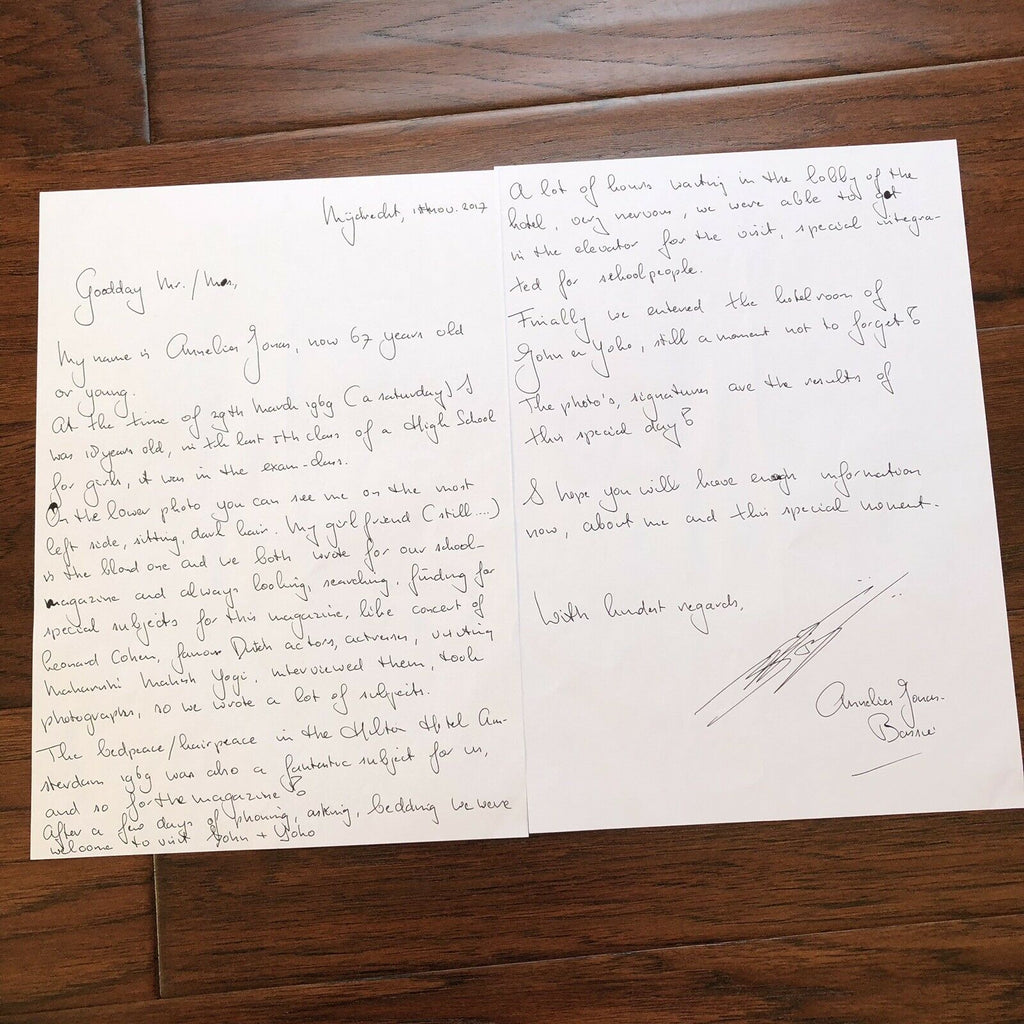 Mijdrecht, 1 nov. 2017
Goodday Mr./Mrs,
My name is Annelies Jonas, now 67 years old
or young.
At the time of 29th March 1969 (a saturday) I
was 18 years old, in the last 5th class of a High School
for girls, it was in the exam-class.
On the lower photo you can see me on the most
left side, sitting, dark hair. My girlfriend (still....)
is the blond one and we both wrote for our school-
magazine and always looking, searching, finding for
special subjects for this magazine, like concert of
Leonard Cohen, famous Dutch actors, actresses, visiting
Maharishi Mahish Yogi, interviewed them, took
photographs, so we wrote a lot of subjects.
The bedpeace/hairpeace in the Hilton Hotel Am-
sterdam 1969 was also a fantastic subject for us,
and so for the magazine!
After a few days of phoning, asking, bedding we were
welcome to visit John + Yoko
A lot of hours waiting in the lobby of the
hotel, very nervous, we were able to get
in the elevator for the visit, special integra-
ted for schoolpeople.
Finally we entered the hotelroom of
John en Yoko, still a moment not to forget!
The photo's, signatures are the results of
this special day!
I hope you will have enough information
now, about me and this special moment.
With kindest regards,
Annelies Jonas-